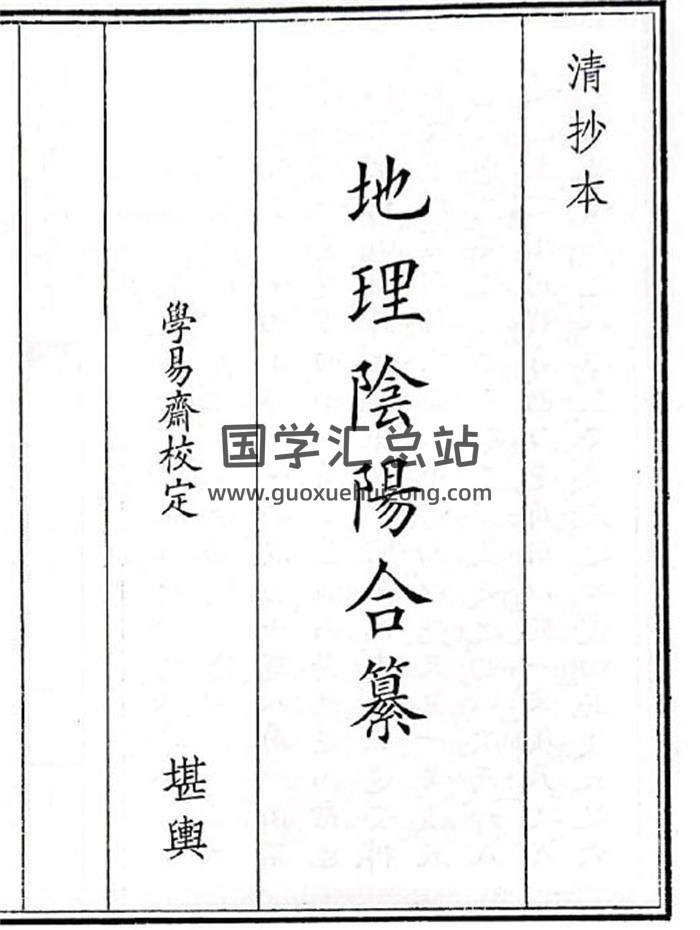 清抄本
地理陰陽合纂
學易齋校定
堪輿
国学汇总站
www.guoxuehuizong.com